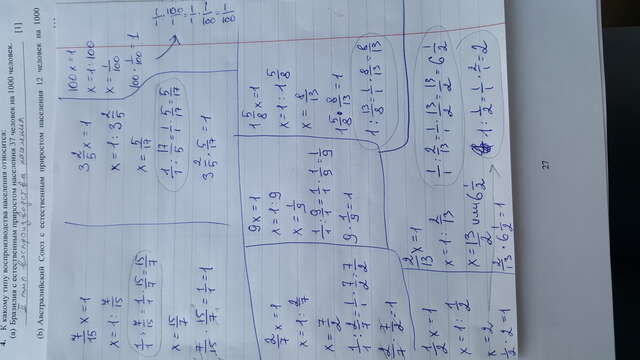 4. К какому типу воспроизводства населения относится:
(a) Бразилия с естественным приростом населения 37 человек на 1000 человек.
II тип воспроизводства населения [1]
(b) Австралийский Союз с естественным приростом населения 12 человек на 1000
7/15 x = 1
x = 1 : 7/15
1/1 : 7/15 = 1/1 · 15/7 = 15/7
x = 15/7
7/15 · 15/7 = 1/1 = 1
3 2/5 x = 1
x = 1 : 3 2/5
x = 5/17
1/1 : 17/5 = 1/1 · 5/17 = 5/17
3 2/5 · 5/17 = 1
100x = 1
x = 1 : 100
x = 1/100
100 · 1/100 = 1
2/7 x = 1
x = 1 : 2/7
x = 7/2
1/1 : 2/7 = 1/1 · 7/2 = 7/2
2/7 · 7/2 = 1
9x = 1
x = 1 : 9
x = 1/9
1/1 : 9/1 = 1/1 · 1/9 = 1/9
9 · 1/9 = 1
1 5/8 x = 1
x = 1 : 1 5/8
x = 8/13
1 5/8 · 8/13 = 1
1 : 13/8 = 1/1 · 8/13 = 8/13
1/2 x = 1
x = 1 : 1/2
x = 2
1/2 · 2 = 1
2/13 x = 1
x = 1 : 2/13
x = 13/2 или 6 1/2
2/13 · 6 1/2 = 1
1/1 : 2/13 = 1/1 · 13/2 = 13/2 = 6 1/2
1 : 1/2 = 1/1 · 2/1 = 2
27